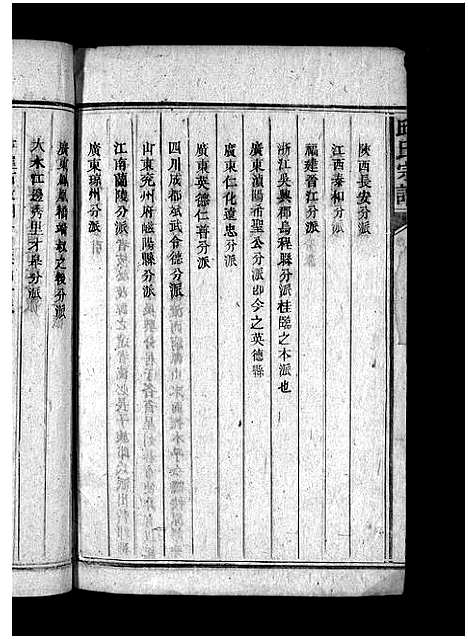 邱氏宗譜
陝西長安分派
江西泰和分派
福建晉江分派
浙江吳興郡烏程縣分派桂臨之本派也
廣東湞陽希聖公分派即今之英德縣
廣東仁化遺忠分派
廣東英德仁善分派
四川成都斌武令德分派
山東兗州府嶧陽縣分派
江南蘭陵分派
廣東瓊州分派
廣東鳳凰精靖叔之後分派
大木江邊秀里才阜分派